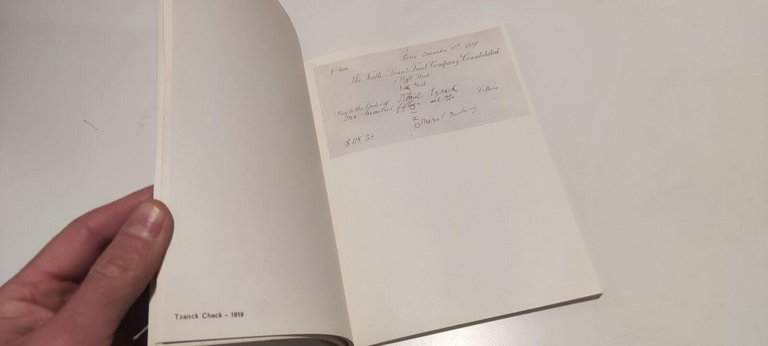 Tzanck Check - 1919
Paris December 3rd 1919
The Teeth's Loan & Trust Company Consolidated
Wall Street
Pay to the Order of Daniel Tzanck
one hundred fifteen and no/100 Dollars
ORIGINAL
Marcel Duchamp